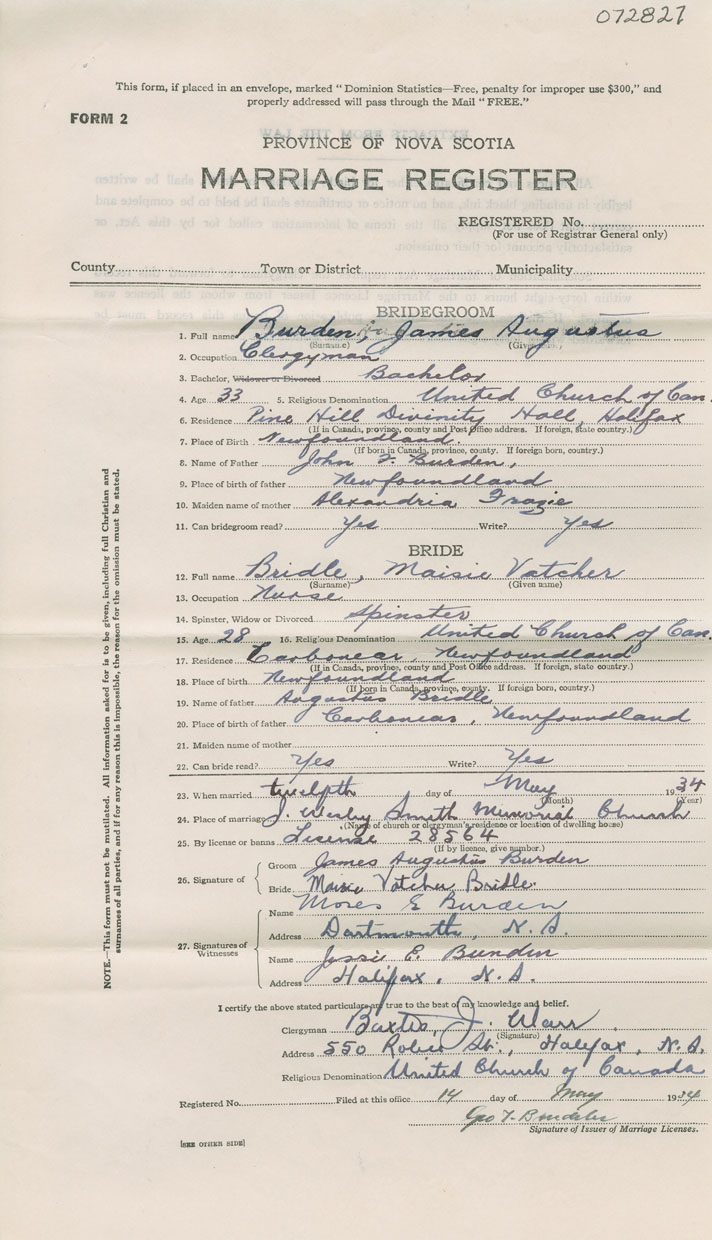 072827
This form, if placed in an envelope, marked "Dominion Statistics—Free, penalty for improper use $300," and
properly addressed will pass through the Mail "FREE."
FORM 2
PROVINCE OF NOVA SCOTIA
MARRIAGE REGISTER
REGISTERED No.
(For use of Registrar General only)
County Town or District Municipality
BRIDEGROOM
1. Full name Burden, James Augustus
(Surname) (Given name)
2. Occupation Clergyman
3. Bachelor, Widower or Divorced Bachelor
4. Age 33 5. Religious Denomination United Church of Can.
6. Residence Pine Hill Divinity Hall, Halifax
(If in Canada, province, county and Post Office address. If foreign, state country.)
7. Place of Birth Newfoundland.
(If born in Canada, province, county. If foreign born, country.)
8. Name of Father John F. Burden,
9. Place of birth of father Newfoundland
10. Maiden name of mother Alexandria Frazie
11. Can bridegroom read? Yes Write? Yes
BRIDE
12. Full name Bridle, Maisie Vatcher
(Surname) (Given name)
13. Occupation Nurse
14. Spinster, Widow or Divorced Spinster
15. Age 28 16. Religious Denomination United Church of Can.
17. Residence Carbonear, Newfoundland
(If in Canada, province, county and Post Office address. If foreign, state country.)
18. Place of birth Newfoundland
(If born in Canada, province, county. If foreign born, country.)
19. Name of father Augustus Bridle
20. Place of birth of father Carbonear, Newfoundland
21. Maiden name of mother
22. Can bride read? Yes Write? Yes
23. When married twelfth day of May 1934
(Month) (Year)
24. Place of marriage J. Wesley Smith Memorial Church
(Name of church or clergyman's residence or location of dwelling house)
25. By license or banns License 28564
(If by licence, give number.)
26. Signature of
Groom James Augustus Burden
Bride Maisie Vatcher Bridle.
27. Signatures of Witnesses
Name Moses E Burden
Address Dartmouth, N.S.
Name Jessie E. Burden
Address Halifax, N.S.
I certify the above stated particulars are true to the best of my knowledge and belief.
Clergyman Baxter J. Warr
(Signature)
Address 550 Robie St., Halifax, N.S.
Religious Denomination United Church of Canada
Registered No. Filed at this office 14 day of May 1934
Geo
Signature of Issuer of Marriage Licenses.
[SEE OTHER SIDE]
NOTE.—This form must not be mutilated. All information asked for is to be given, including full Christian and
surnames of all parties, and if for any reason this is impossible, the reason for the omission must be stated.